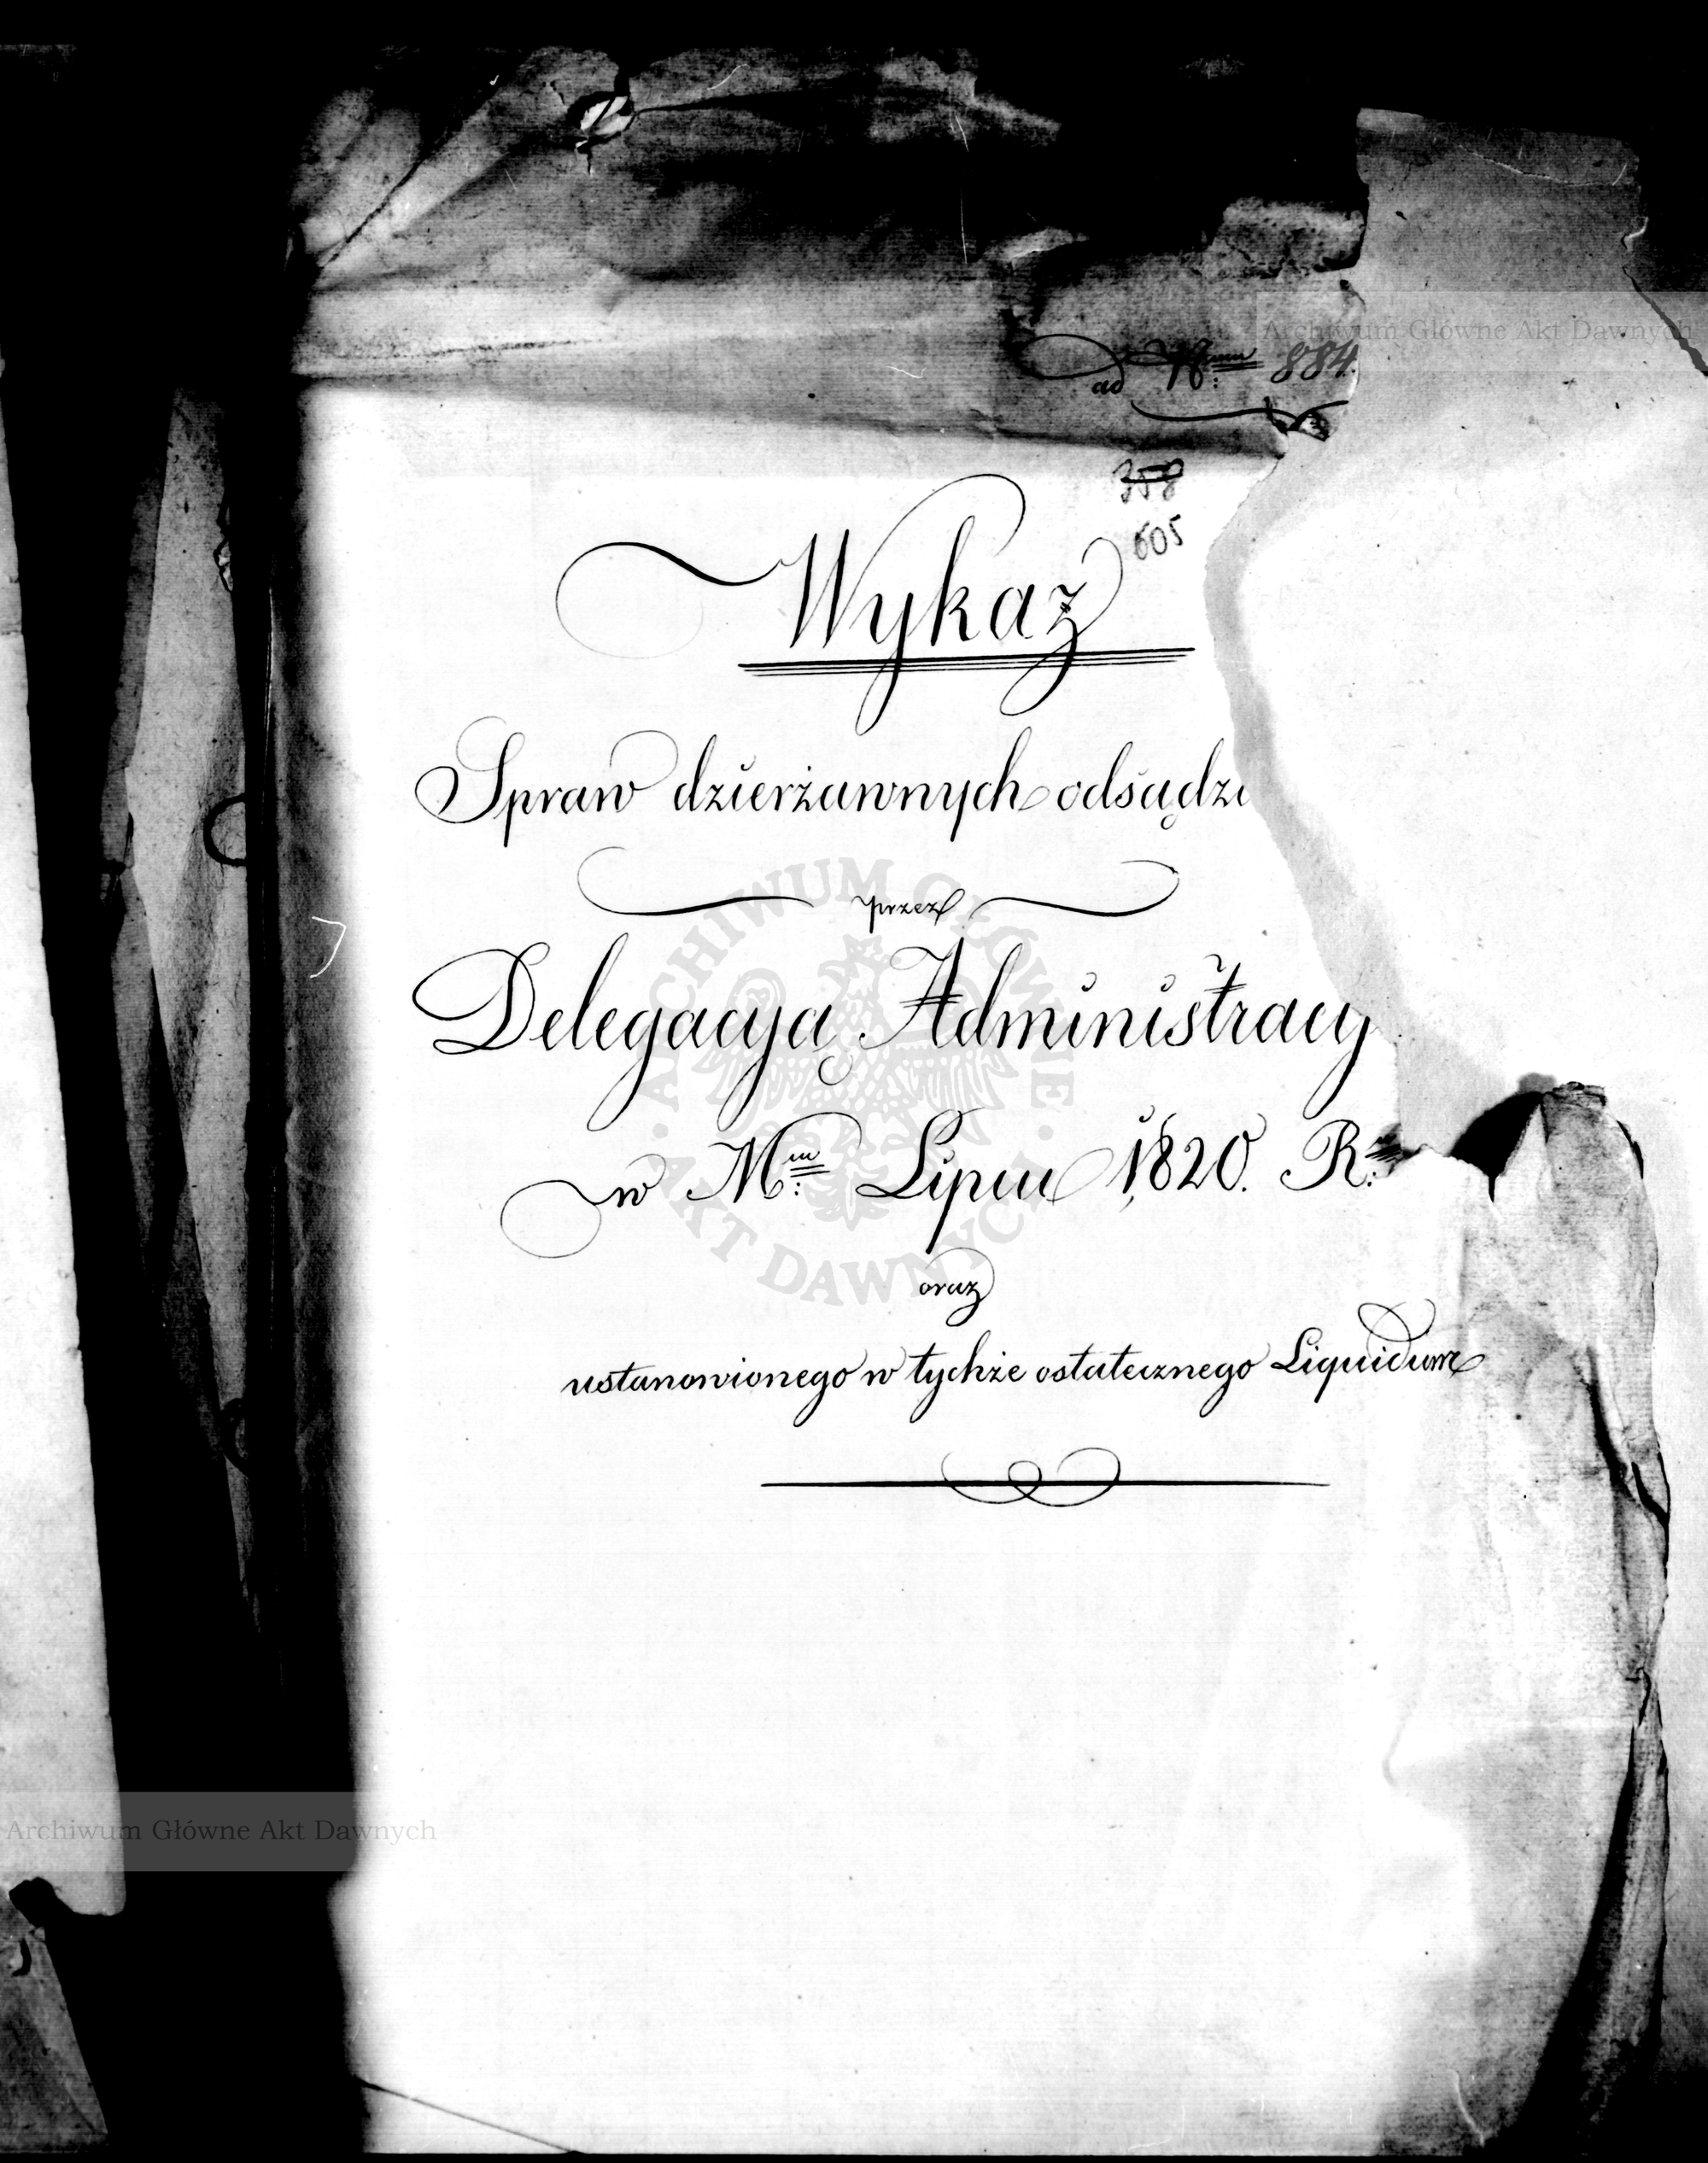 Archiwum Główne Akt Dawnych
ad N:um 884.
358
605
Wykaz
Spraw dzierżawnych odsądzo
przez
Delegacyą Administracy
w M:cu Lipcu 1820. R:
oraz
ustanowionego w tychże ostatecznego Liquidum
ARCHIWUM GŁÓWNE
AKT DAWNYCH
Archiwum Główne Akt Dawnych